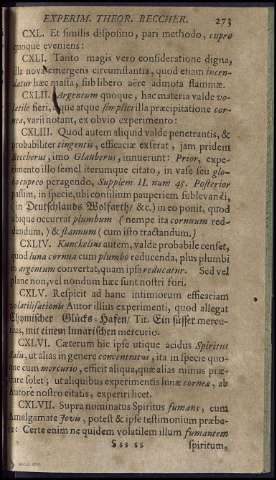 EXPERIM. THEOR. BECCHER. 273
CXL. Et similis dispositio, pari methodo, cupro
cuoque eveniens:
CXLI. Tanto magis vero consideratione digna,
illa nova emergens circumstantia, quod etiam incen-
datur hæc massa, sub libero aëre admota flammæ.
CXLII. Argentum quoque, hac materia valde vo-
latile fieri, atque simplici illa præcipitatione cor-
nea, varii notant, ex obvio experimento:
CXLIII. Quod autem aliquid valde penetrantis, &
probabiliter tingentis, efficaciæ exferat, jam pridem
Beccherus, imo Glauberus, innuerunt: Prior, expe-
rimento illo semel iterumque citato, in vase seu
peragendo, Supplem II. num 45. Posterior
passim, in specie, ubi consilium pauperiem sublevandi,
in Deutschlands Wolfarth/ &c.) in eo ponit, quod
ubique occurrat plumbum (nempe ita cornuum red-
dendum,) & stannum (cum isto tractandum.)
CXLIV. Kunckelius autem, valde probabile censet,
quod luna cornua cum plumbo reducenda, plus plumbi
in argentum convertat, quam ipsa reducatur. Sed vel
plane non, vel nondum hæc sunt nostri fori.
CXLV. Respicit ad hanc intimiorem efficaciam
Autor illius experimenti, quod allegat
Glücks-Hafen/ Tit. Ein süsser mercu-
rius, mit einem lunarischen mercurio.
CXLVI. Cæterum hic ipse utique acidus Spiritus
Salis, ut alias in genere concentratus, ita in specie quo-
que cum mercurio, efficit aliqua, quæ alias minus præ-
stare solet; ut aliquibus experimentis lunæ corneæ, ab
Autore nostro citatis, experiri licet.
CXLVII. Supra nominatus Spiritus fumans, cum
Amalgamate Jovis, potest & ipse testimonium præbe-
re: Certe enim ne quidem volatilem illum fumantem
S ss ss spiritum,